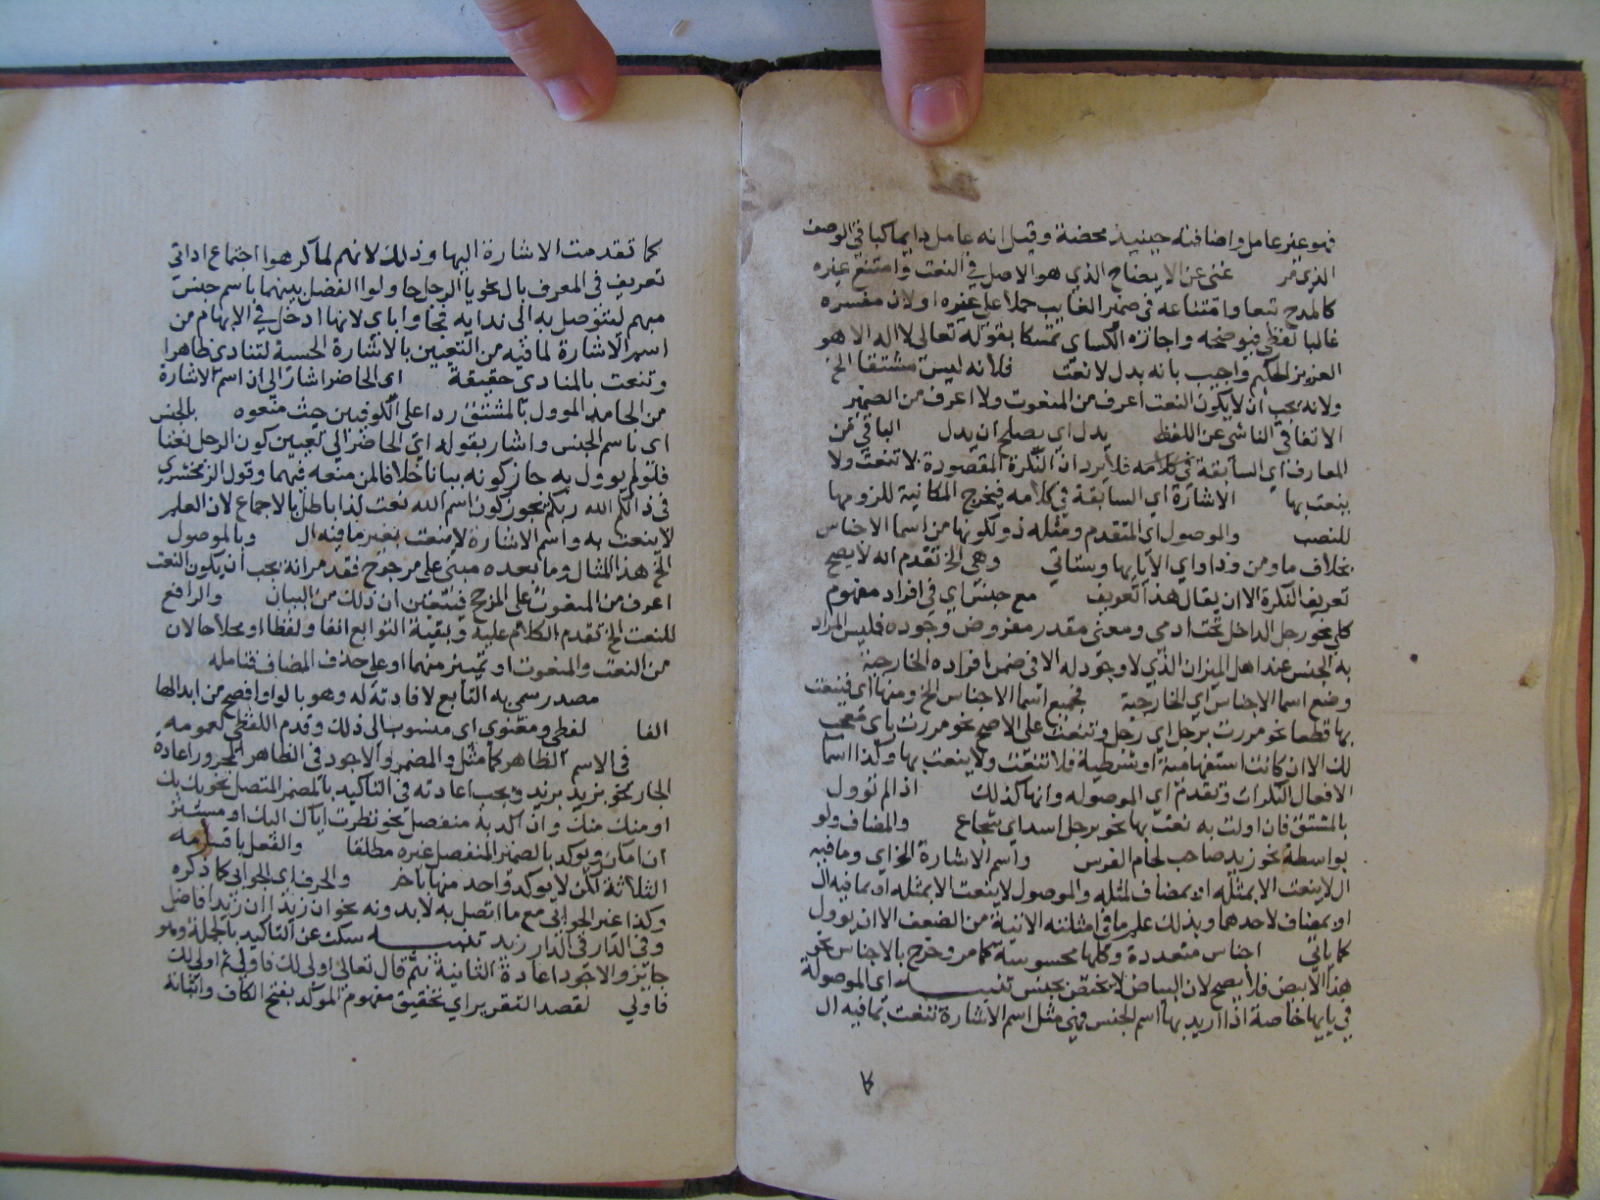 فهو غير عامل واضافته حينيذ محضة وقيل انه عامل دايما كبا في الوصف
الذي مر غنى عن الايضاح الذي هو الاصل في النعت وامتنع غيره
كالمدح تبعا وامتناعه في ضمير الغايب حملا على غيره او لان مفسره
غالبا لفظي فيوضحه واجازه الكساي تمسكا بقوله تعالى لا اله الا هو
العزيز الحكيم واجيب بانه بدل لا نعت فلأنه ليس مشتقا الخ
ولانه يجب ان لا يكون النعت اعرف من المنعوت ولا اعرف من الضمير
الاتفاقي الناشي عن اللفظ يدل اي يصلح ان يدل الباقي من
المعارف اي السابقة في كلامه فلا يرد ان النكرة المقصورة لا تنعت ولا
ينعت بها الاشارة اي السابقة في كلامه فيخرج المكانية للزومها
للنصب والموصول اي المتقدم ومثله ذو لكونها من اسما الاجناس
بخلاف ما ومن وذا واي الا يابها وستاتي وهي الخ تقدم انه لا يصح
تعريف النكرة الا ان يقال هذا تعريف مع جنس اي في افراد مفهوم
كلي نحو رجل الداخل تحت ادمي ومعنى مقدر مفروض وجوده فليس المراد
به الجنس عند اهل الميزان الذي لا وجود له الا في ضمن افراده الخارجية
وضع اسما الاجناس اي الخارجية فجميع اسما الاجناس الخ ومنها اي فينعت
بها قطعا نحو مررت برجل اي رجل وتنعت على الاصح نحو مررت باي معجب
لك الا ان كانت استفهامية او شرطية فلا تنعت ولا ينعت بها وكذا اسما
الافعال النكرات وتقدم اي الموصوله وانها كذلك اذا لم توول
بالمشتق فان اولت به نعت بها نحو برجل اسد اي شجاع والمضاف ولو
بواسطة نحو زيد صاحب لجام الفرس واسم الاشارة الخ اي وما فيه
ال لا ينعت الا بمثله او بمضاف لمثله والموصول لا ينعت الا بمثله او بما فيه ال
او بمضاف لاحدهما وبذلك علم ما في امثلته الاتية من الضعف الا ان يوول
كما ياتي اجناس متعددة وكلها محسوسة كما مر وخرج بالاجناس نحو
هذا الابيض فلا يصح لان البياض لا يختص بجنس تنبيه اي الموصولة
في يايها خاصة اذا اريد بها اسم الجنس فهي مثل اسم الاشارة تنعت بما فيه ال
كا
كما تقدمت الاشارة اليها وذلك لانهم لما كرهوا اجتماع اداتي
تعريف في المعرف بال نحو يا الرجل حاولوا الفصل بينهما باسم جنس
مبهم ليتوصل به الى ندايه فجاوا باي لانها ادخل في الابهام من
اسم الاشارة لما فيه من التعيين بالاشارة الحسية لتنادي ظاهرا
وتنعت بالمنادي حقيقة اي الحاضر اشار الى ان اسم الاشارة
من الجامد الموول بالمشتق ردا على الكوفيين حيث منعوه بالجنس
اي باسم الجنس واشار بقوله اي الحاضر الى تعيين كون الرجل نعتا
فلو لم يوول به جاز كونه بيانا خلافا لمن منعه فيهما وقول الزمخشري
في ذالكم الله ربكم يجوز كون اسم الله نعت لذا باطل بالاجماع لان العلم
لا ينعت به واسم الاشارة لا ينعت بغير ما فيه ال وبالموصول
الخ هذا المثال وما بعده مبني على مرجوح فقد مر انه يجب أن يكون النعت
اعرف من المنعوت على المرجح فيتعين ان ذلك من البيان والرافع
للنعت الخ تقدم الكلام عليه وبقية التوابع انفا ولفظا او محلا حالان
من النعت والمنعوت او تمييز منهما او على حذف المضاف فتامله
مصدر سمي به التابع لافادته له وهو بالواو افصح من ابدالها
الفا لفظي ومعنوي اي منسوب الى ذلك وقدم اللفظي لعمومه
في الاسم الظاهر كما مثل والمضمر والاجود في الظاهر المجرور اعادة
الجار نحو بزيد بزيد ويجب اعادته في التاكيد بالمضمر المتصل نحو بك بك
او منك منك وان اكد به منفصل نحو نظرت اياك اليك او مستتر
ان امكن ويوكد بالضمير المنفصل غيره مطلقا والفعل باقسامه
الثلاثة لكن لا يوكد واحد منها باخر والحرف اي الجوابي كما ذكره
وكذا غير الجوابي مع ما اتصل به لابد ونه نحو ان زيدا ان زيدا فاضل
وفي الدار في الدار زيد تنبيه سكت عن التاكيد بالجملة وهو
جايز والاجود اعادة الثانية بثم قال تعالى اولى لك فاولى ثم اولى لك
فاولي لقصد التقرير اي تحقيق مفهوم الموكد بفتح الكاف واثباته